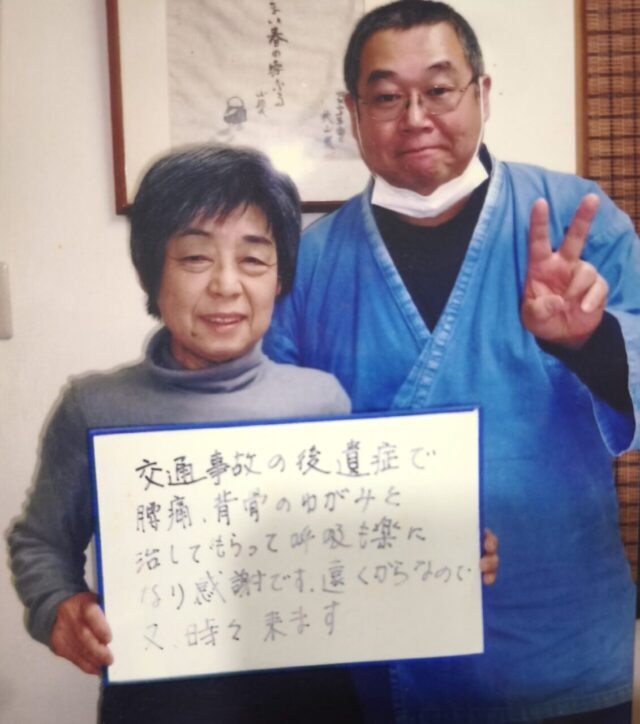 交通事故の後遺症で
腰痛、背骨のゆがみを
治してもらって呼吸も楽に
なり感謝です、遠くからなので
又、時々来ます